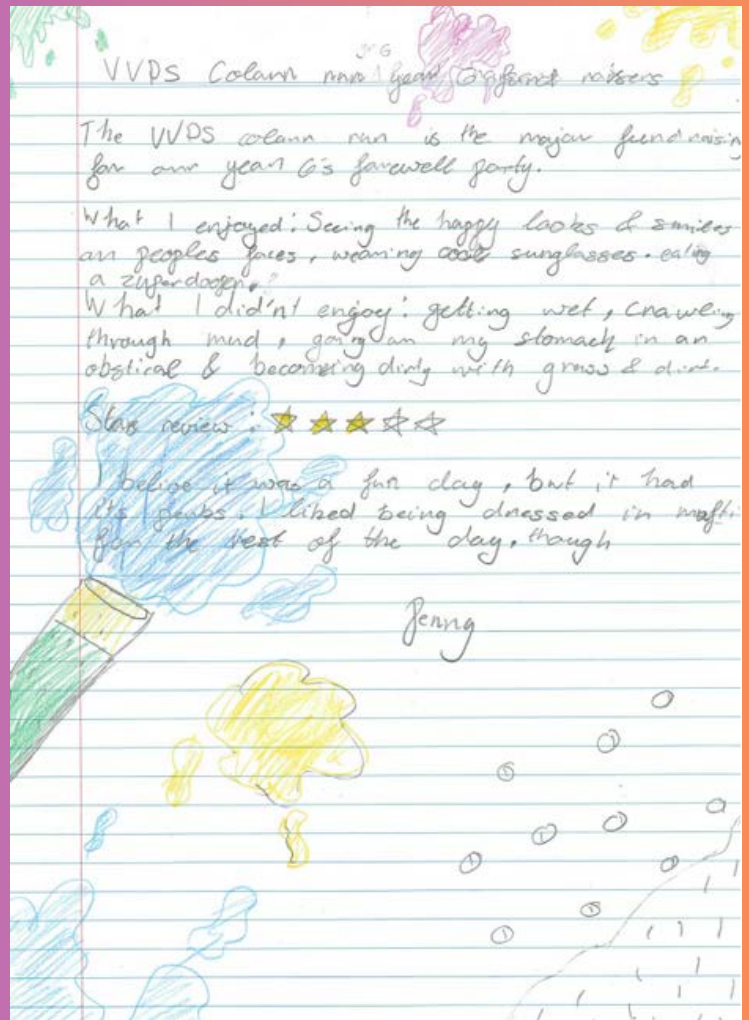 VVPS Colour run year 6
The VVPS colour run is the major fundraising
for our year 6's farewell party.
What I enjoyed: Seeing the happy looks & smiles
on peoples faces, wearing cool sunglasses. eating
a zuperdooper.
What I did'nt enjoy: getting wet, crawling
through mud, going on my stomach in an
obstical & becomeing dirty with grass & dirt.
Star review:
I belive it was a fun day, but it had
its I liked being dressed in mufti
for the rest of the day, though
Jenny